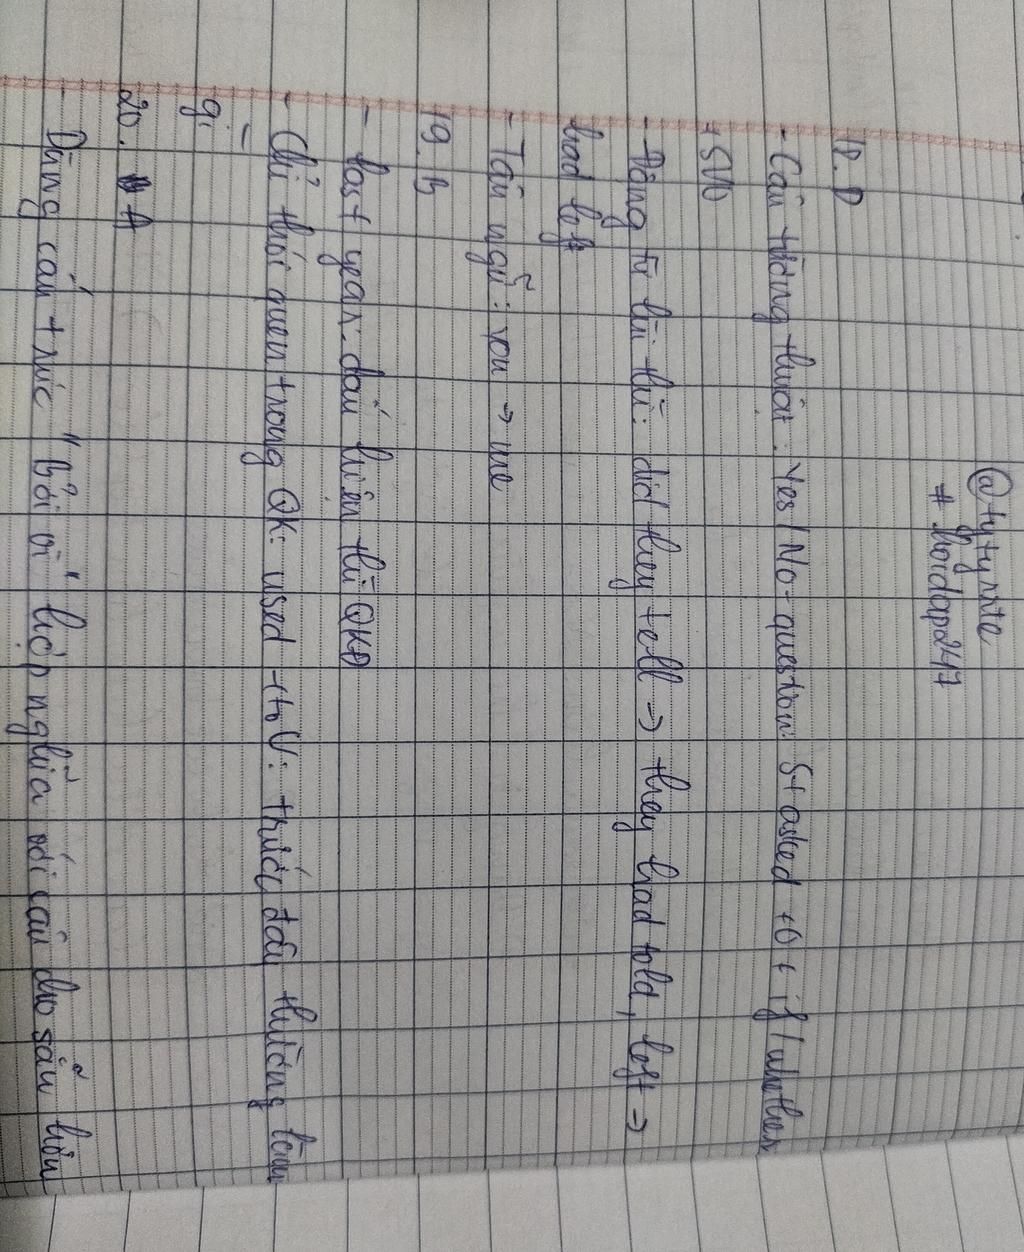 @tytynnte
# hoidap247
18. D
- Câu tường thuật : Yes / No - question: S + asked + O + if / whether
+ SVO
- Động từ lùi thì: did they tell → they had told, left →
had left
- Tân ngữ : you → me
19. B
- last year: dấu hiệu thì QKĐ
- Chỉ thói quen trong QK: used + to V: trước đây thường làm
gì
20. A
- Dùng cấu trúc "bởi vì" hợp nghĩa với câu cho sẵn hơn